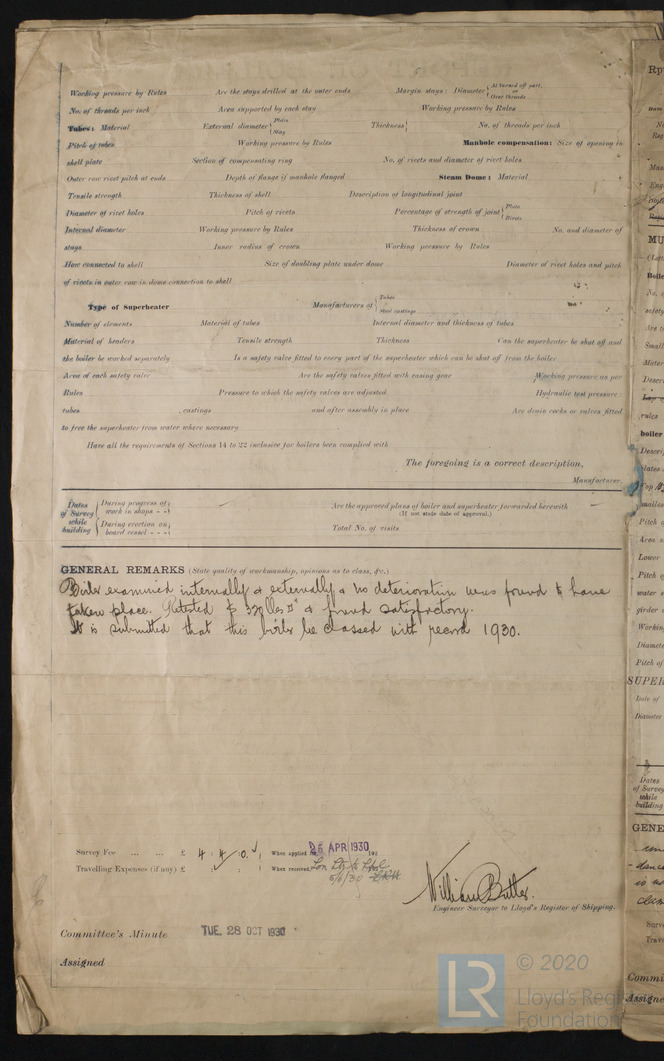 Working pressure by Rules Are the stays drilled at the outer ends Margin stays: Diameter { At turned off part, or Over threads
No. of threads per inch Area supported by each stay Working pressure by Rules
Tubes: Material External diameter { Plain Stay Thickness { No. of threads per inch
Pitch of tubes Working pressure by Rules Manhole compensation: Size of opening in
shell plate Section of compensating ring No. of rivets and diameter of rivet holes
Outer row rivet pitch at ends Depth of flange if manhole flanged Steam Dome: Material
Tensile strength Thickness of shell Description of longitudinal joint
Diameter of rivet holes Pitch of rivets Percentage of strength of joint { Plate Rivets
Internal diameter Working pressure by Rules Thickness of crown No. and diameter of
stays Inner radius of crown Working pressure by Rules
How connected to shell Size of doubling plate under dome Diameter of rivet holes and pitch
of rivets in outer row in dome connection to shell
Type of Superheater Manufacturers of { Tubes Steel castings
Number of elements Material of tubes Internal diameter and thickness of tubes
Material of headers Tensile strength Thickness Can the superheater be shut off and
the boiler be worked separately Is a safety valve fitted to every part of the superheater which can be shut off from the boiler
Area of each safety valve Are the safety valves fitted with easing gear Working pressure as per
Rules Pressure to which the safety valves are adjusted Hydraulic test pressure
tubes castings and after assembly in place Are drain cocks or valves fitted
to free the superheater from water where necessary
Have all the requirements of Sections 14 to 22 inclusive for boilers been complied with
The foregoing is a correct description,
Manufacturer.
Dates of Survey while building { During progress of work in shops - - Are the approved plans of boiler and superheater forwarded herewith
(If not state date of approval.)
During erection on board vessel - - - Total No. of visits
GENERAL REMARKS (State quality of workmanship, opinions as to class, &c.)
Boiler examined internally & externally & no deterioration was found to have
taken place. Retested to 320 lbs □" & found satisfactory.
It is submitted that this boiler be classed with record 1930.
Survey Fee ... ... ... £ 4 : 4 : 0 When applied for 25 APR 1930
Travelling Expenses (if any) £ : : When received
5/6/30
William Butler.
Engineer Surveyor to Lloyd's Register of Shipping.
Committee's Minute TUE. 28 OCT 1930
Assigned
© 2020
LR Lloyd's Regi
Foundation